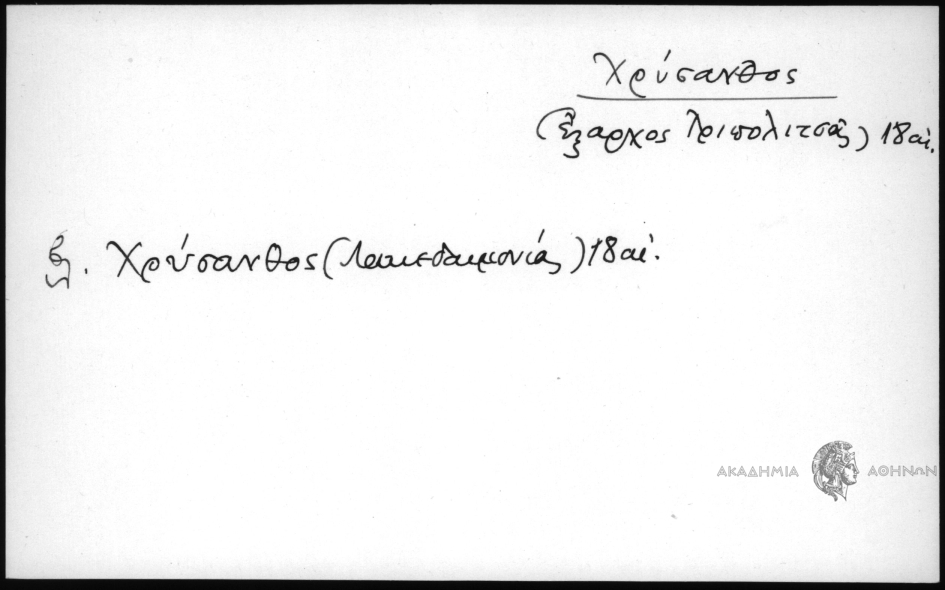 Χρύσανθος
(ἔξαρχος Τριπολιτσᾶς) 18 αἰ.
βλ. Χρύσανθος (Λακεδαιμονίας) 18 αἰ.
ΑΚΑΔΗΜΙΑ ΑΘΗΝΩΝ